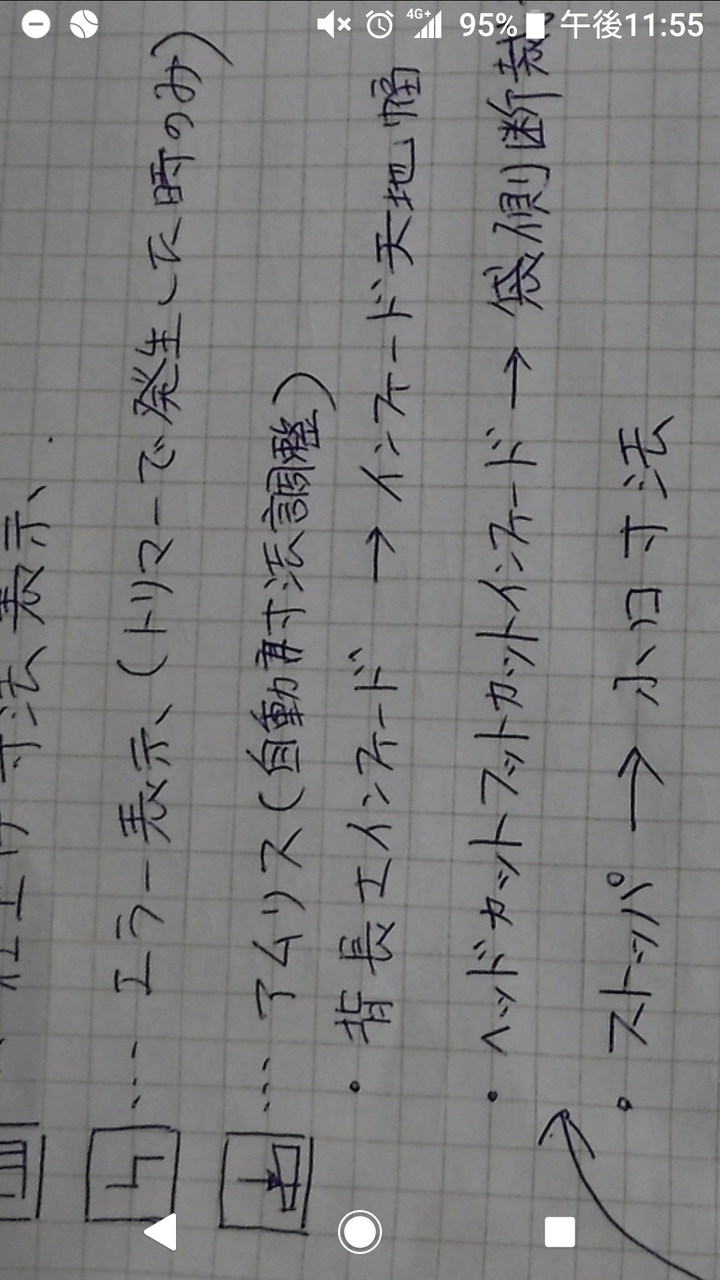 4G+ 95% 午後11:55
仕上げ寸法表示、
… エラー表示、(トリマーで発生した時のみ)
… アムリス(自動再寸法調整)
・背長エインフィード → インフィード天地幅
・ヘッドカットフットカットインフィード → 袋側断裁
・ストッパ → 小口寸法